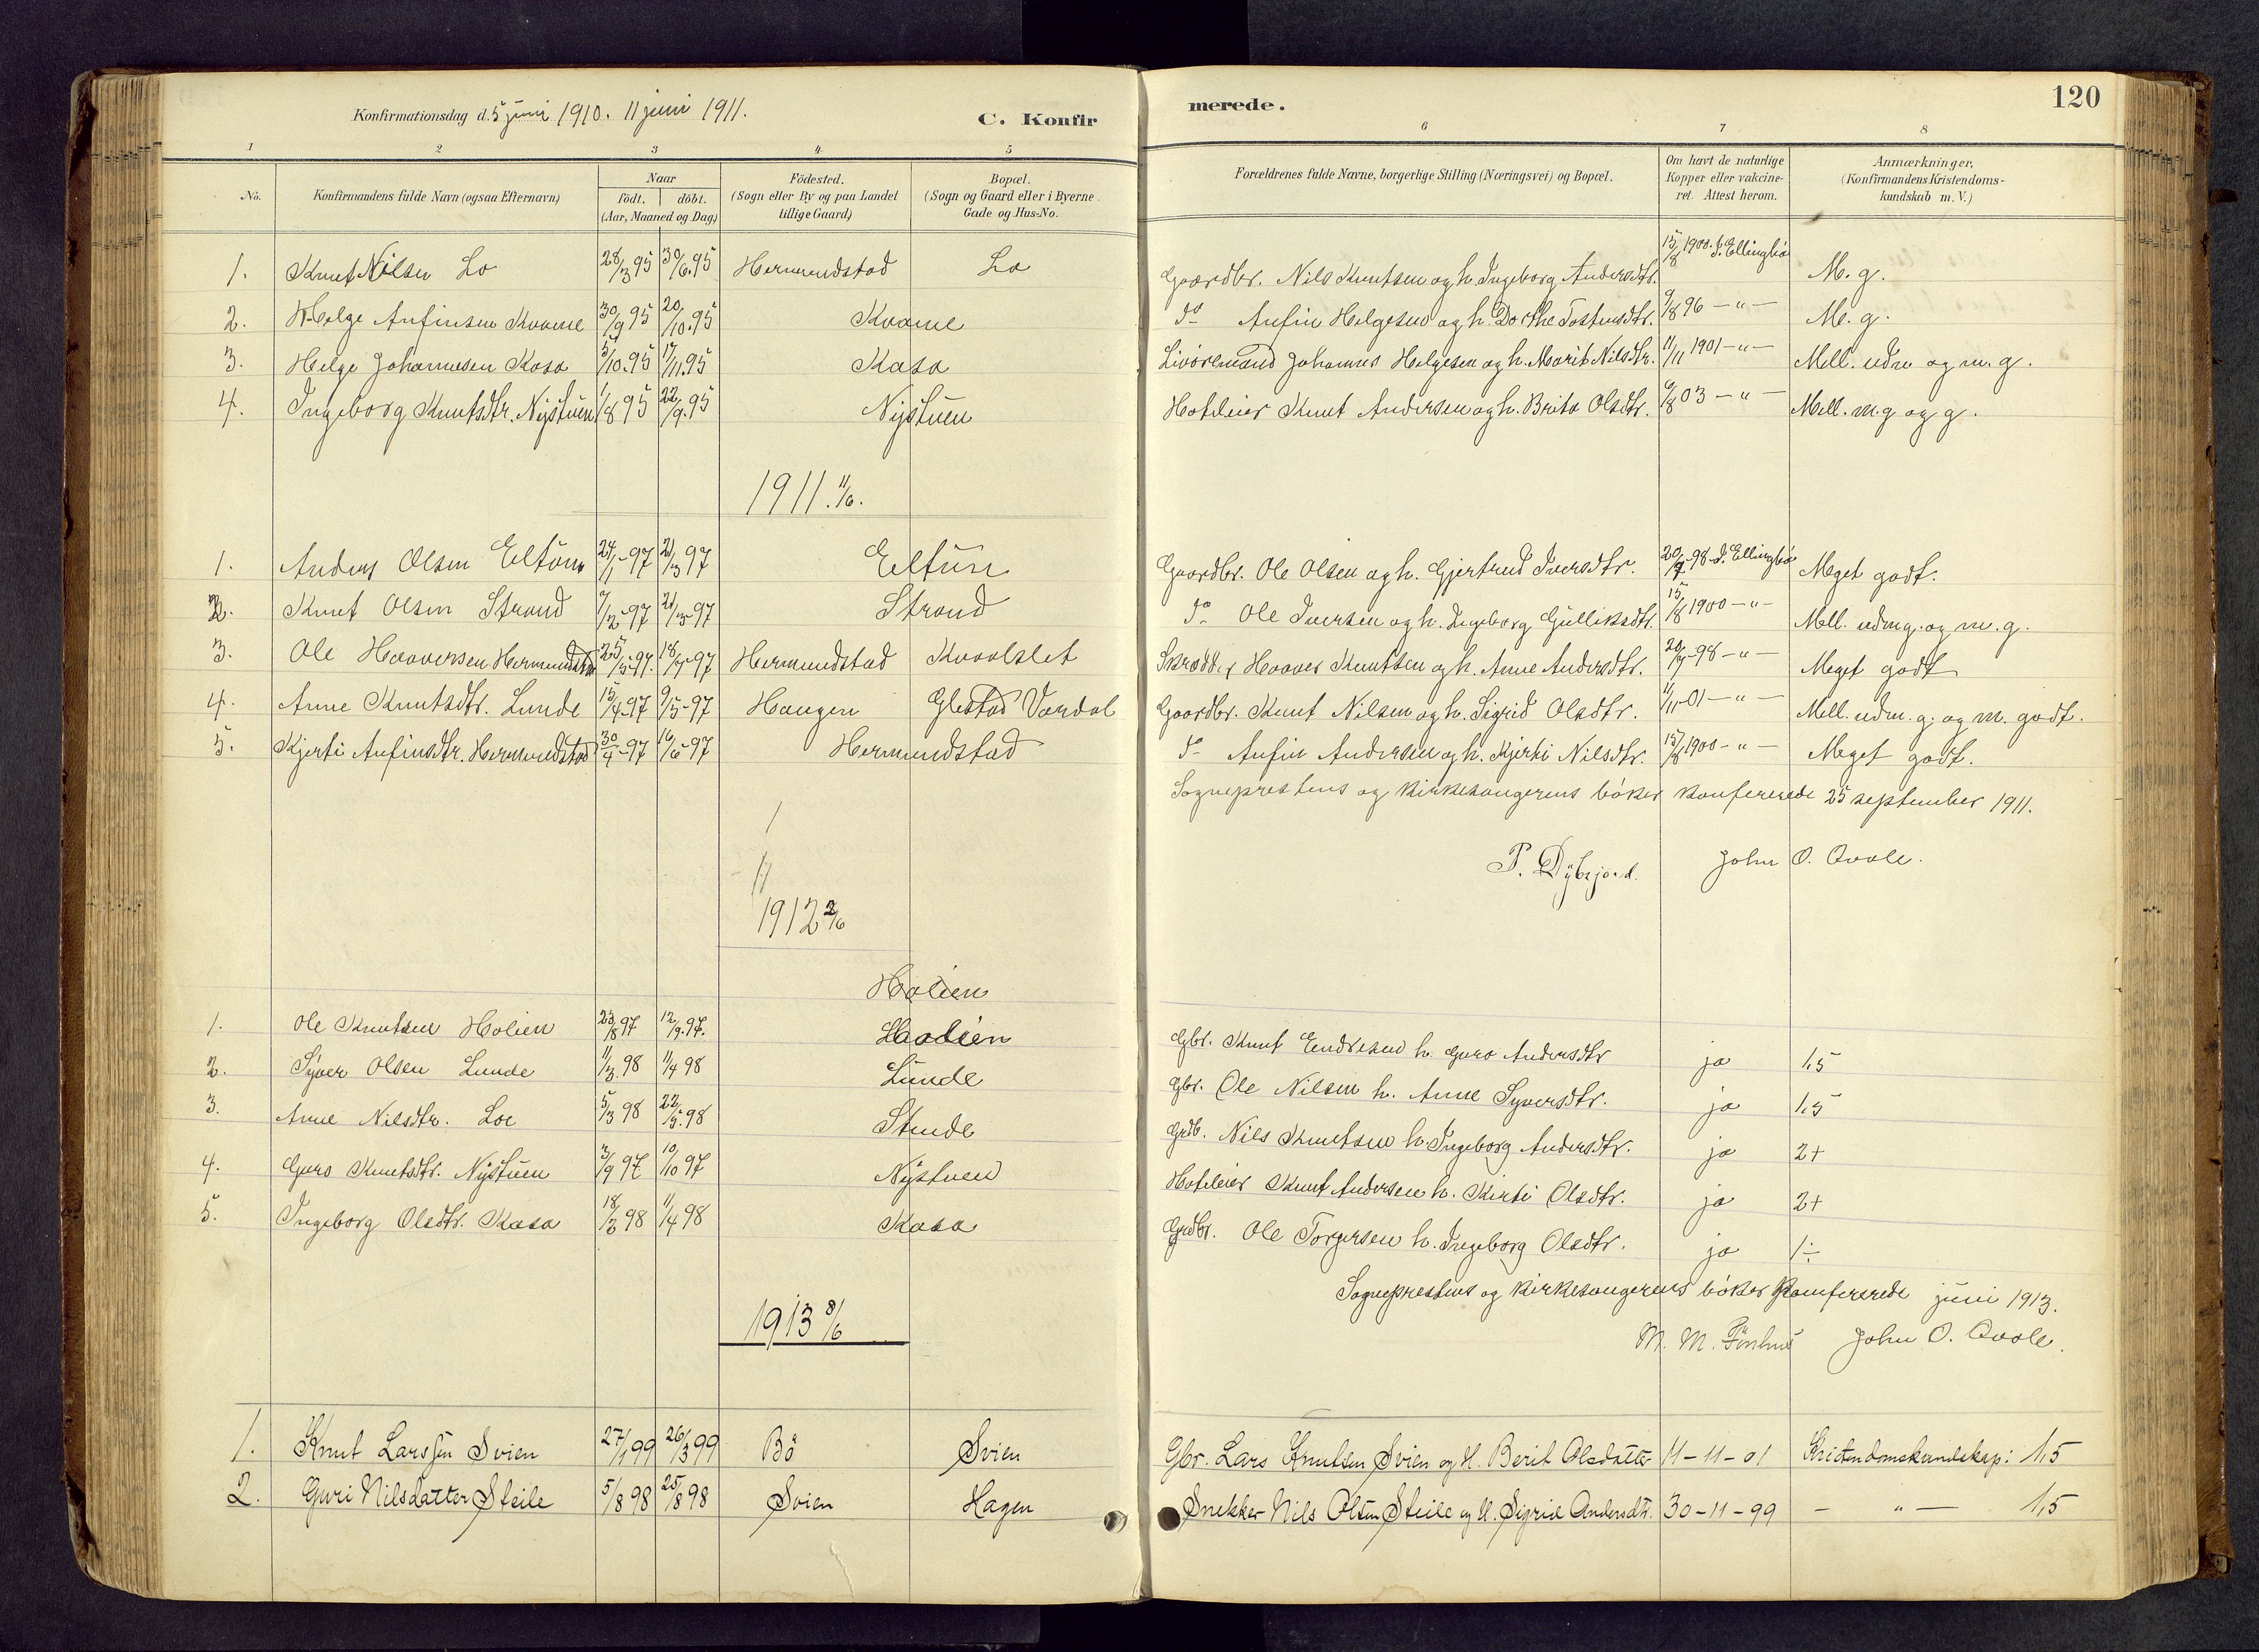 Konfirmationsdag d. 5 juni 1910. 11 juni 1911.
C. Konfirmerede.
120
1 2 3 4 5 6 7 8
No.
Konfirmandens fulde Navn (ogsaa Efternavn)
Naar
födt. döbt.
(Aar, Maaned og Dag)
Födested.
(Sogn eller By og paa Landet
tillige Gaard)
Bopæl.
(Sogn og Gaard eller i Byerne
Gade og Hus-No.
Forældrenes fulde Navne, borgerlige Stilling (Næringsvei) og Bopæl.
Om havt de naturlige
Kopper eller vakcine-
ret. Attest herom.
Anmærkninger,
(Konfirmandens Kristendoms-
kundskab m. V.)
1. Knut Nilsen Lo 28/3 95 30/6.95 Hermundstad Lo Gaardbr. Nils Knutsen og h. Ingeborg Andersdtr. 15/8 1900. J. Ellingbö M. g.
2. Helge Anfinsen Kvame 30/9 95 20/10.95 Kvame do Anfin Helgesen og h. Dorthe Tostensdtr. 9/8 96 – " – M. g.
3. Helge Johannesen Kasa 5/10.95 17/11.95 Kasa Livöremand Johannes Helgesen og h. Marit Nilsdtr. 11/11 1901 – " – Mell. udm og m. g.
4. Ingeborg Knutsdtr. Nystuen 1/8 95 22/9.95 Nystuen Hoteleier Knut Andersen og h. Brita Olsdtr. 9/8 03 – " – Mell. m.g og g.
1911. 11/6.
1. Anders Olsen Eltun 24/1-97 21/3 97 Eltun Gaardbr. Ole Olsen og h. Gjertrud Iversdtr. 20/9-98 J. Ellingbö Meget godt.
2. Knut Olsen Strand 7/2-97 21/3-97 Strand do Ole Iversen og h. Ingeborg Gulliksdtr. 15/8 1900 – " – Mell. udm g. og m. g.
3. Ole Haaversen Hermundstad 25/5-97. 18/7-97 Hermundstad Kvalslet Skrædder Haaver Knutsen og h. Anne Andersdtr. 20/9-98 – " – Meget godt
4. Anne Knutsdtr. Lunde 15/4-97 9/5-97 Haugen Glestad Vardal Gaardbr. Knut Nilsen og h. Sigrid Olsdtr. 11/11-01 – " – Mell. udm. g. og m. godt.
5. Kjerti Anfinsdtr. Hermundstad 30/4-97 16/6-97 Hermundstad do Anfin Andersen og h. Kjerti Nilsdtr. 15/8 1900 – " – Meget godt.
Sogneprestens og kirkesangerens böker konfererede 25 september 1911.
P. Dybsjord. John O. Qvale.
1912 2/6
Holien
1. Ole Knutsen Holien 23/8 97 12/9.97. Haalien Gbr. Knut Endresen h. Guro Andersdtr ja 1,5
2. Syver Olsen Lunde 11/3.98 11/4 98 Lunde Gbr. Ole Nilsen h. Anne Syversdtr. ja 1,5
3. Anne Nilsdtr. Loe 5/3 98 22/5.98 Stende Grdb. Nils Knutsen h. Ingeborg Andersdtr. ja 2+
4. Guro Knutsdtr. Nystuen 3/9 97 10/10 97 Nystuen Hoteleier Knut Andersen h. Kirti Olsdtr. ja 2+
5. Ingeborg Olsdtr. Kasa 18/3 98 11/4 98 Kasa Grdbr. Ole Torgersen h. Ingeborg Olsdtr. ja 1÷
Sogneprestens og kirkesangerens böker konfererede juni 1913.
M. M. Fönhus John O. Qvale.
1913 8/6
1. Knut Larssen Svien 27/1 99 26/3 99 Bö Svien Gbr. Lars Knutsen Svien og H. Berit Olsdatter 11-11-01 Kristendomskundskap: 1,5
2. Guri Nilsdatter Steile 5/8 98 25/8 98 Svien Hagen Snekker Nils Olsen Steile og H. Sigrid Andersdtr. 30-11-99 – " – 1,5